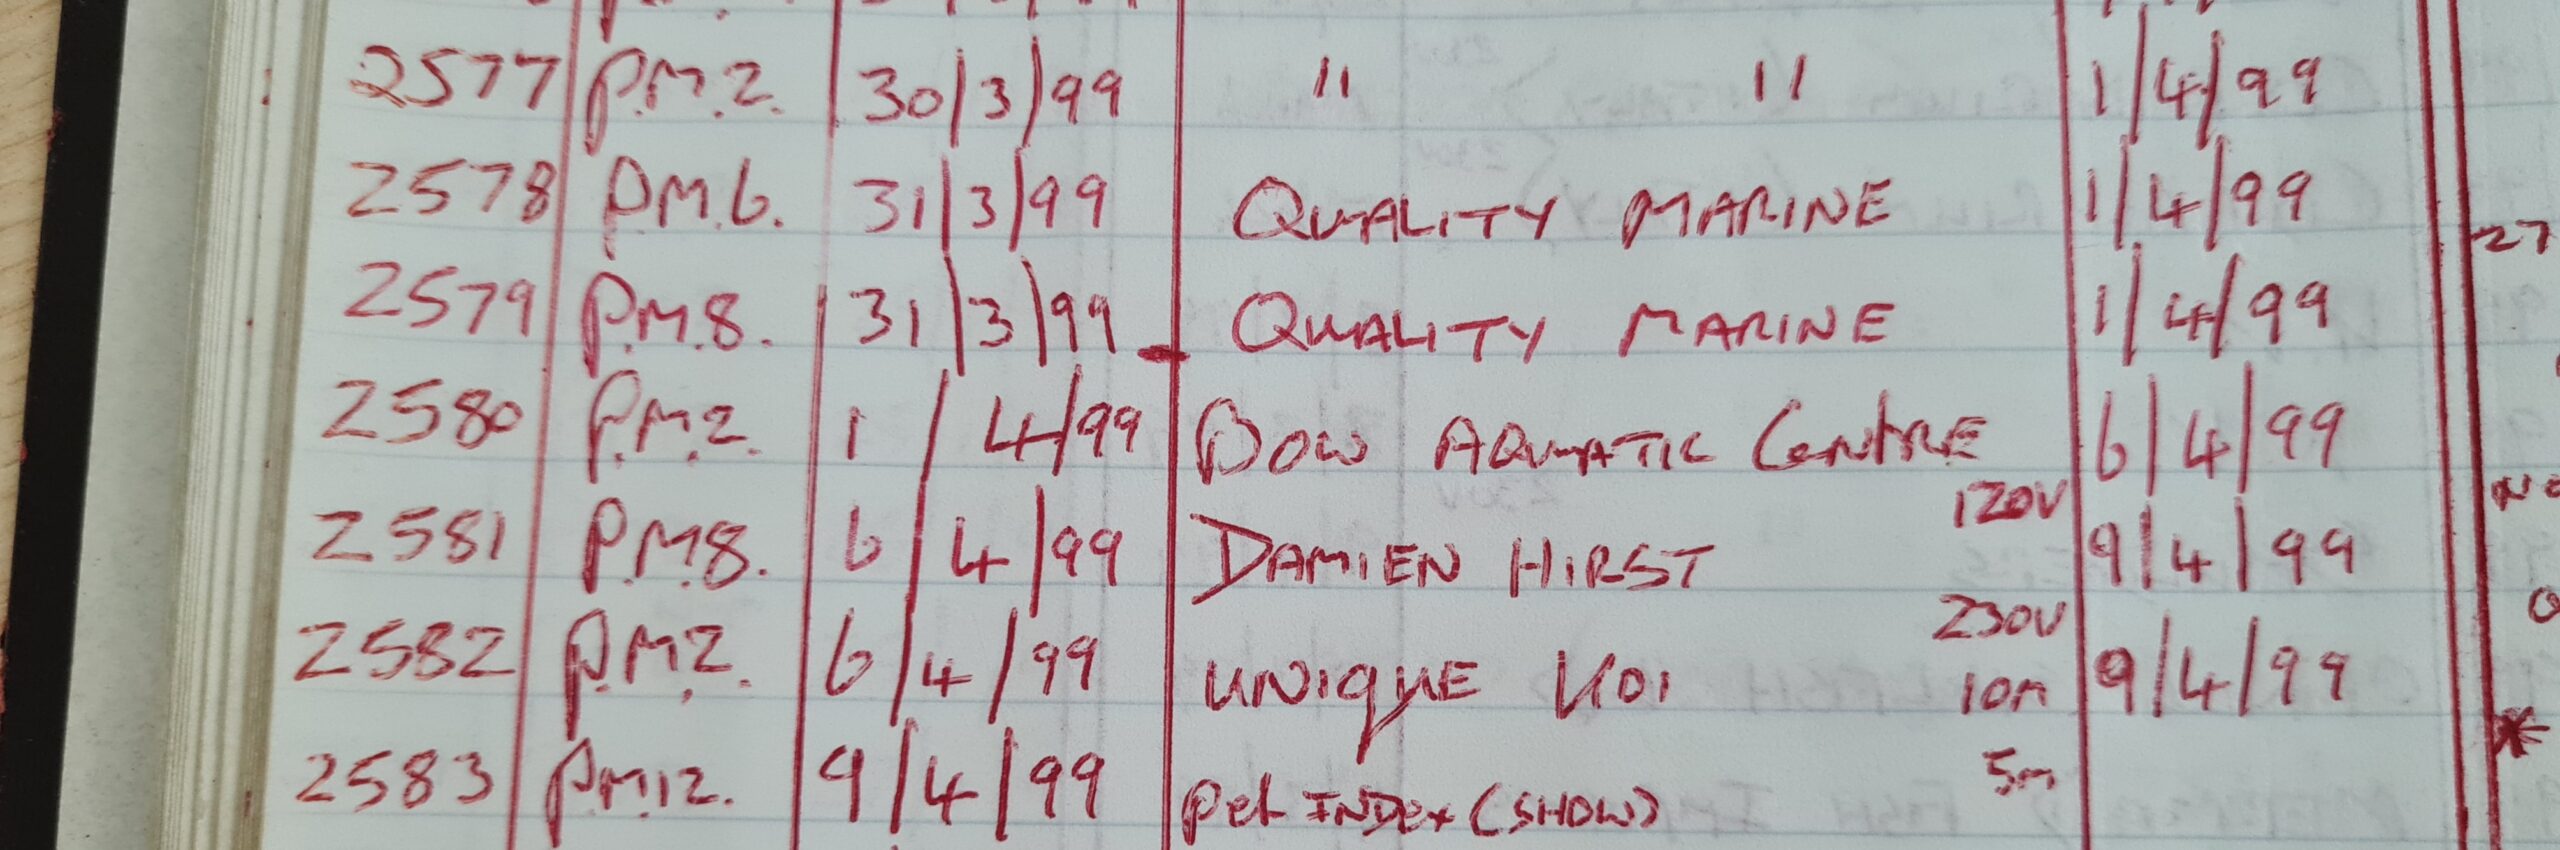 2577 P.M.2. 30/3/99 " " 1/4/99
2578 P.M.6. 31/3/99 QUALITY MARINE 1/4/99
27
2579 P.M.8. 31/3/99 QUALITY MARINE 1/4/99
2580 P.M.2. 1/4/99 BOW AQUATIC CENTRE 6/4/99
120V
2581 P.M.8. 6/4/99 DAMIEN HIRST 9/4/99
230V
2582 P.M.2. 6/4/99 UNIQUE KOI 10m 9/4/99
5m
2583 P.M.12. 9/4/99 Pet INDEX (SHOW)